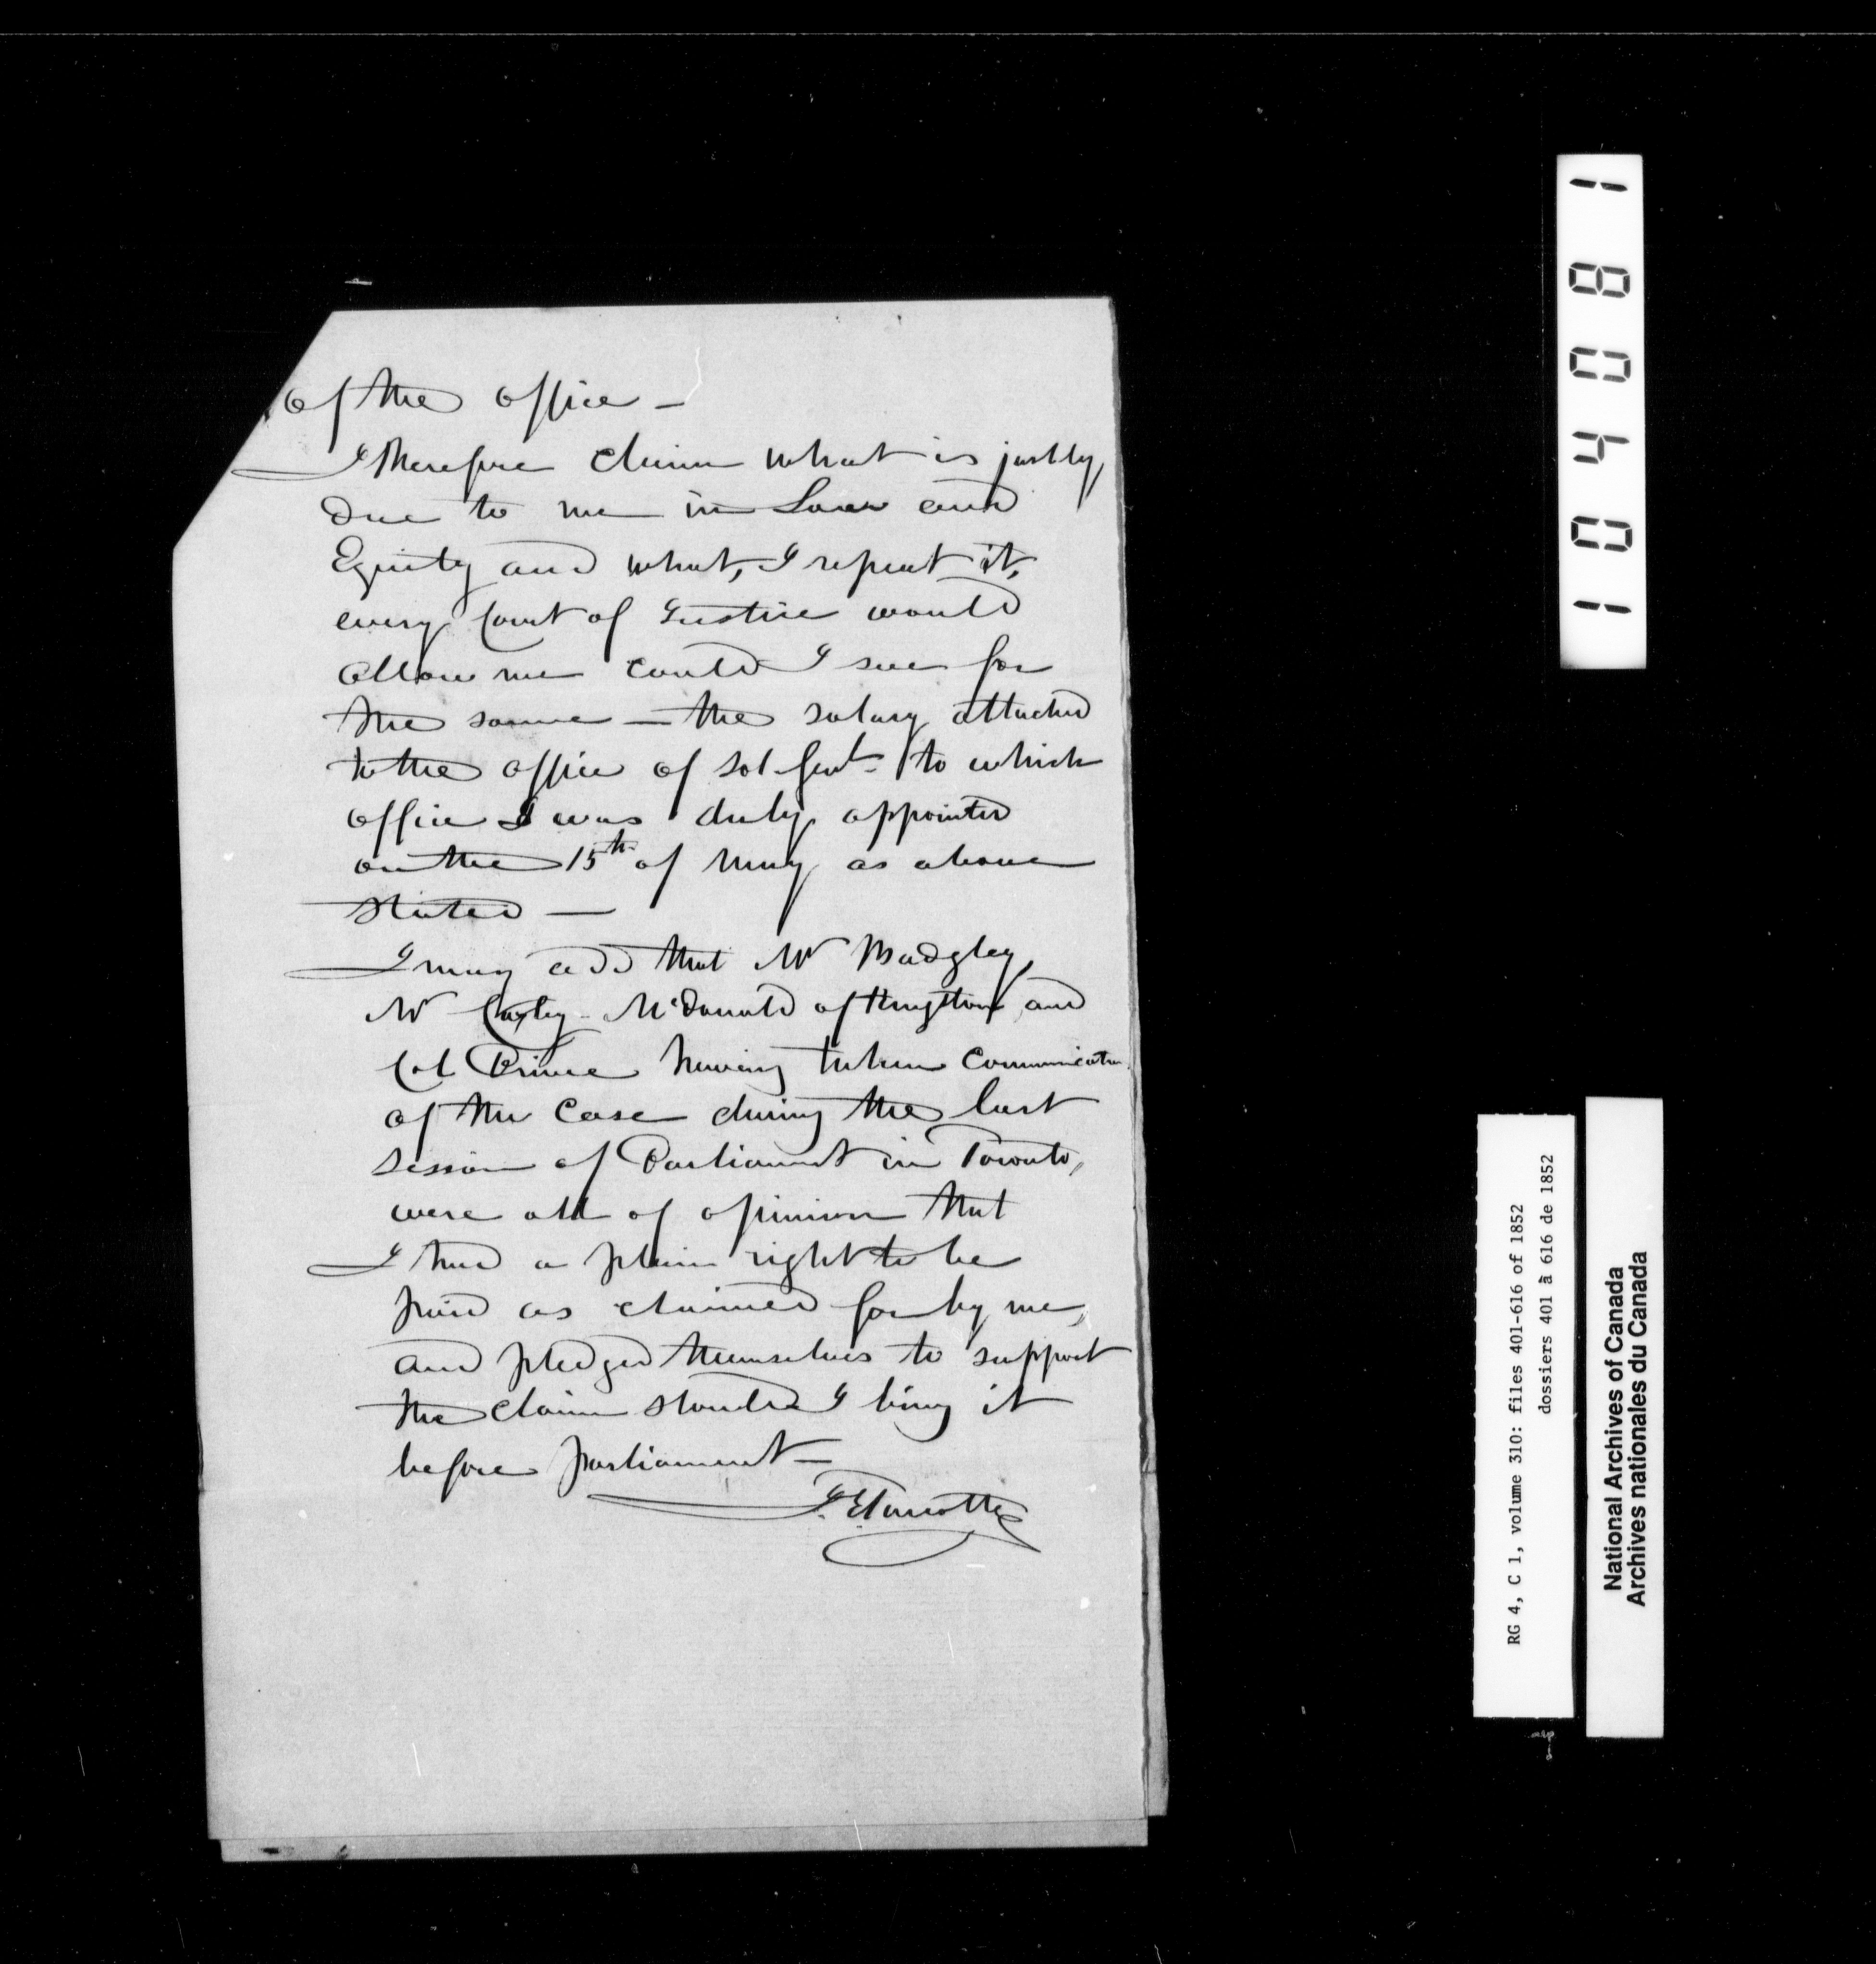 of the office —
I therefore claim what is justly
due to me in Law and
Equity and what, I repeat it,
every Court of Justice would
allow me could I sue for
the same — the salary attached
to the office of Sol. Genl. to which
office I was duly appointed
on the 15th of May as above
stated —
I may add that Mr Badgley,
Mr Cayley McDonald of Kingston and
Col Prince having taken communication
of the Case during the last
session of Parliament in Toronto,
were all of opinion that
I had a plain right to be
paid as claimed for by me,
and pledged themselves to support
the claim should I bring it
before parliament —
J. E. Turcotte
104081
RG 4, C 1, volume 310: files 401-616 of 1852
dossiers 401 à 616 de 1852
National Archives of Canada
Archives nationales du Canada